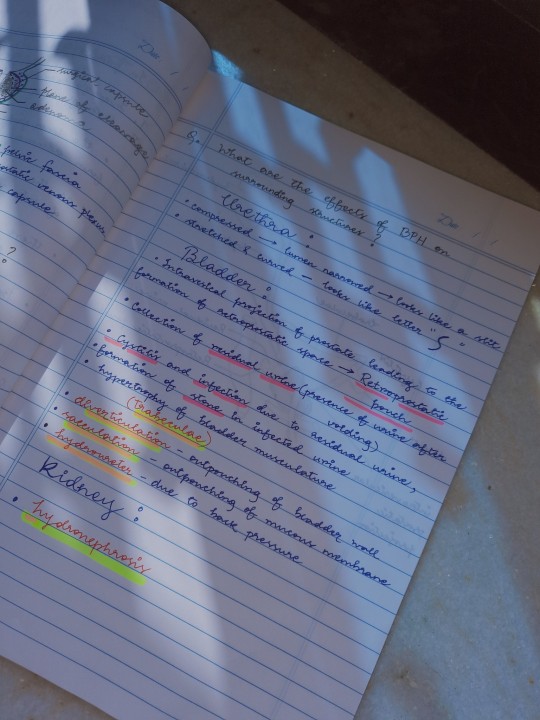 surgical capsule
plane of cleavage
adenoma
pelvic fascia
prostatic venous plexus
capsule
?
Date / /
Q. What are the effects of BPH on
surrounding structures?
Date / /
Urethra :
• compressed → lumen narrowed → looks like a slit
• stretched & curved – looks like letter "S"
Bladder :
• Intravesical projection of prostate leading to the
formation of retroprostatic space → Retroprostatic
pouch
• Collection of residual urine (presence of urine after
voiding)
• Cystitis and infection due to residual urine,
formation of stone in infected urine
• hypertrophy of bladder musculature
(trabeculae)
• diverticulation – outpouching of bladder wall
• sacculation – outpouching of mucous membrane
• hydroureter – due to back pressure
Kidney :
• hydronephrosis